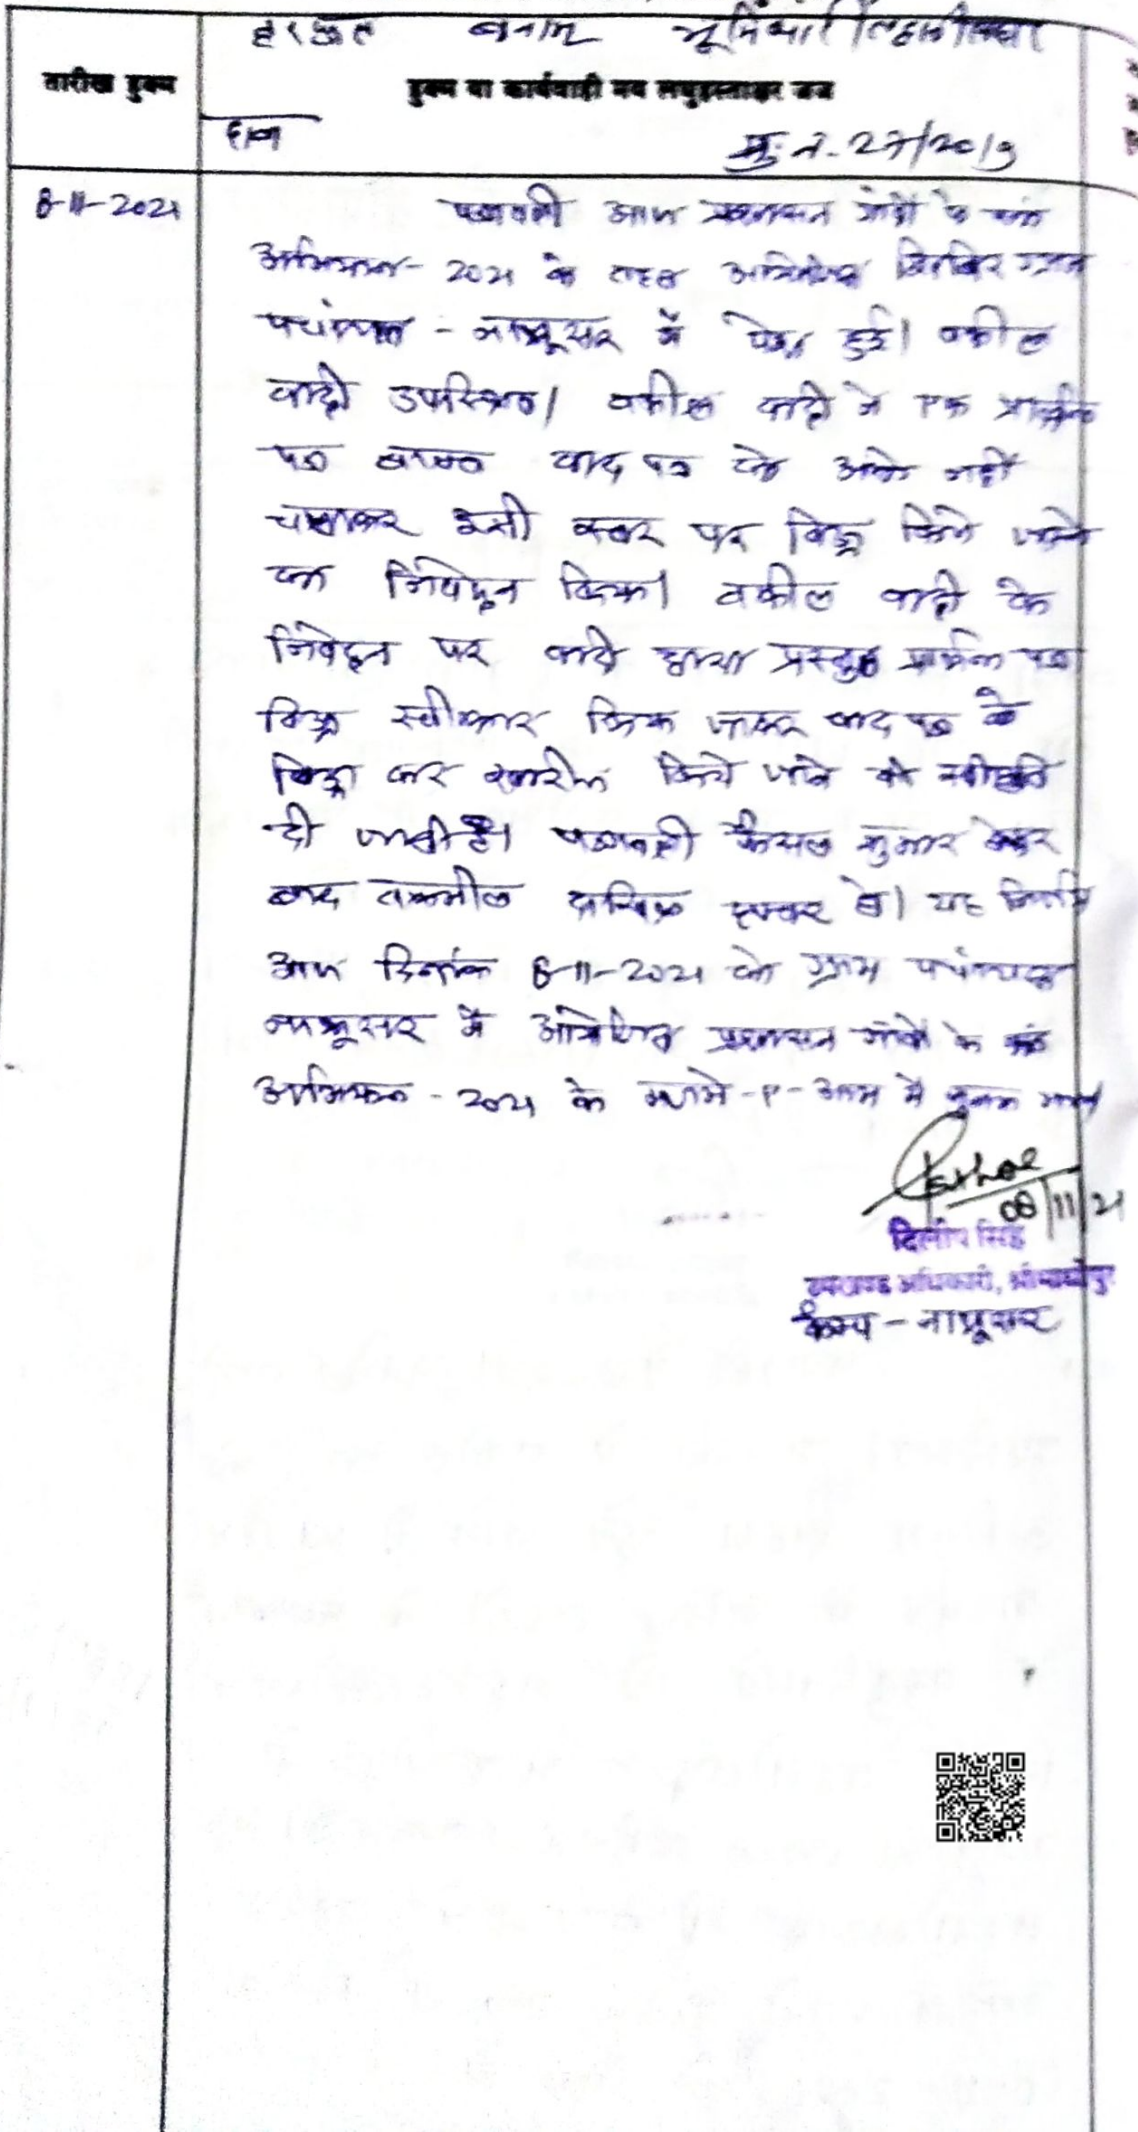 बनाम
तारीख हुक्म
हुक्म या कार्यवाही मय लघुहस्ताक्षर जज
मु. न. 27/2019
8-11-2021
पत्रावली आज प्रशासन गांवों के संग
अभियान - 2021 के तहत आयोजित शिविर ग्राम
पचांयत - नाथूसर में पेश हुई। वकील
वादी उपस्थित। वकील वादी ने एक प्रार्थना
पत्र बाबत वाद पत्र को आगे नहीं
चलाकर इसी स्तर पर विड्रा किये जाने
का निवेदन किया। वकील वादी के
निवेदन पर वादी द्वारा प्रस्तुत प्रार्थना पत्र
विड्रा स्वीकार किया जाकर वाद पत्र को
विड्रा कर खारीज किये जाने की स्वीकृति
दी जाती है। पत्रावली फैसल शुमार होकर
बाद तकमील दाखिल दफ्तर हो। यह निर्णय
आज दिनांक 8-11-2021 को ग्राम पचंायत
नाथूसर में आयोजित प्रशासन गांवों के संग
अभियान - 2021 के मजमे-ए-आम में सुनाया गया
08/11/21
दिलीप सिंह
उपखण्ड अधिकारी, श्रीमाधोपुर
कैम्प - नाथूसर